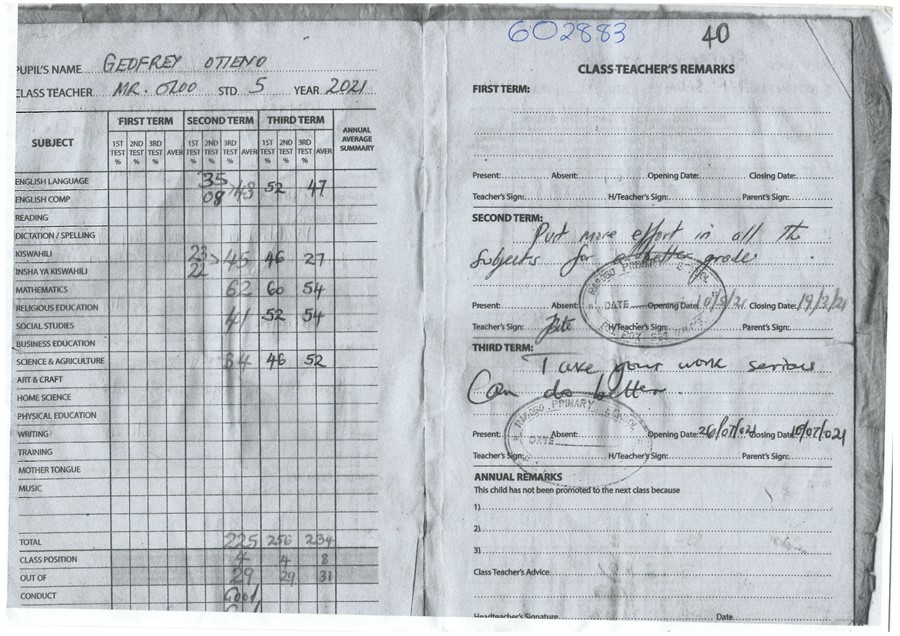 602883 40
PUPIL'S NAME GEDFREY OTIENO
CLASS TEACHER MR. OLOO STD 5 YEAR 2021
SUBJECT FIRST TERM SECOND TERM THIRD TERM ANNUAL AVERAGE SUMMARY
1ST TEST % 2ND TEST % 3RD TEST % AVER 1ST TEST % 2ND TEST % 3RD TEST % AVER 1ST TEST % 2ND TEST % 3RD % AVER
ENGLISH LANGUAGE 35 43 52 47
ENGLISH COMP 08
READING
DICTATION / SPELLING
KISWAHILI 23 45 46 27
INSHA YA KISWAHILI 22
MATHEMATICS 62 60 54
RELIGIOUS EDUCATION
SOCIAL STUDIES 41 52 54
BUSINESS EDUCATION
SCIENCE & AGRICULTURE 34 46 52
ART & CRAFT
HOME SCIENCE
PHYSICAL EDUCATION
WRITING
TRAINING
MOTHER TONGUE
MUSIC
TOTAL 225 256 234
CLASS POSITION 4 4 8
OUT OF 29 29 31
CONDUCT Good
CLASS TEACHER'S REMARKS
FIRST TERM:
Present: Absent: Opening Date: Closing Date:
Teacher's Sign: H/Teacher's Sign: Parent's Sign:
SECOND TERM:
Put more effort in all the
subjects for a better grade.
Present: Absent: Opening Date: Closing Date: 19/3/21
Teacher's Sign: H/Teacher's Sign: Parent's Sign:
PRIMARY SCHOOL
DATE
THIRD TERM:
Take your work serious
Can do better.
Present: Absent: Opening Date: Closing Date:
Teacher's Sign: H/Teacher's Sign: Parent's Sign:
PRIMARY SCHOOL
DATE
ANNUAL REMARKS
This child has not been promoted to the next class because
1)
2)
3)
Class Teacher's Advice
Headteacher's Signature Date